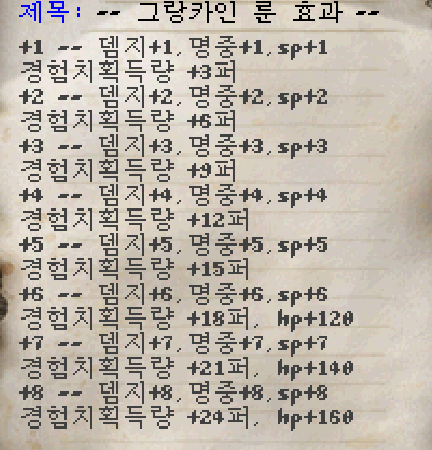 제목: -- 그랑카인 룬 효과 --
+1 -- 뎀지+1,명중+1,sp+1
경험치획득량 +3퍼
+2 -- 뎀지+2,명중+2,sp+2
경험치획득량 +6퍼
+3 -- 뎀지+3,명중+3,sp+3
경험치획득량 +9퍼
+4 -- 뎀지+4,명중+4,sp+4
경험치획득량 +12퍼
+5 -- 뎀지+5,명중+5,sp+5
경험치획득량 +15퍼
+6 -- 뎀지+6,명중+6,sp+6
경험치획득량 +18퍼, hp+120
+7 -- 뎀지+7,명중+7,sp+7
경험치획득량 +21퍼, hp+140
+8 -- 뎀지+8,명중+8,sp+8
경험치획득량 +24퍼, hp+160